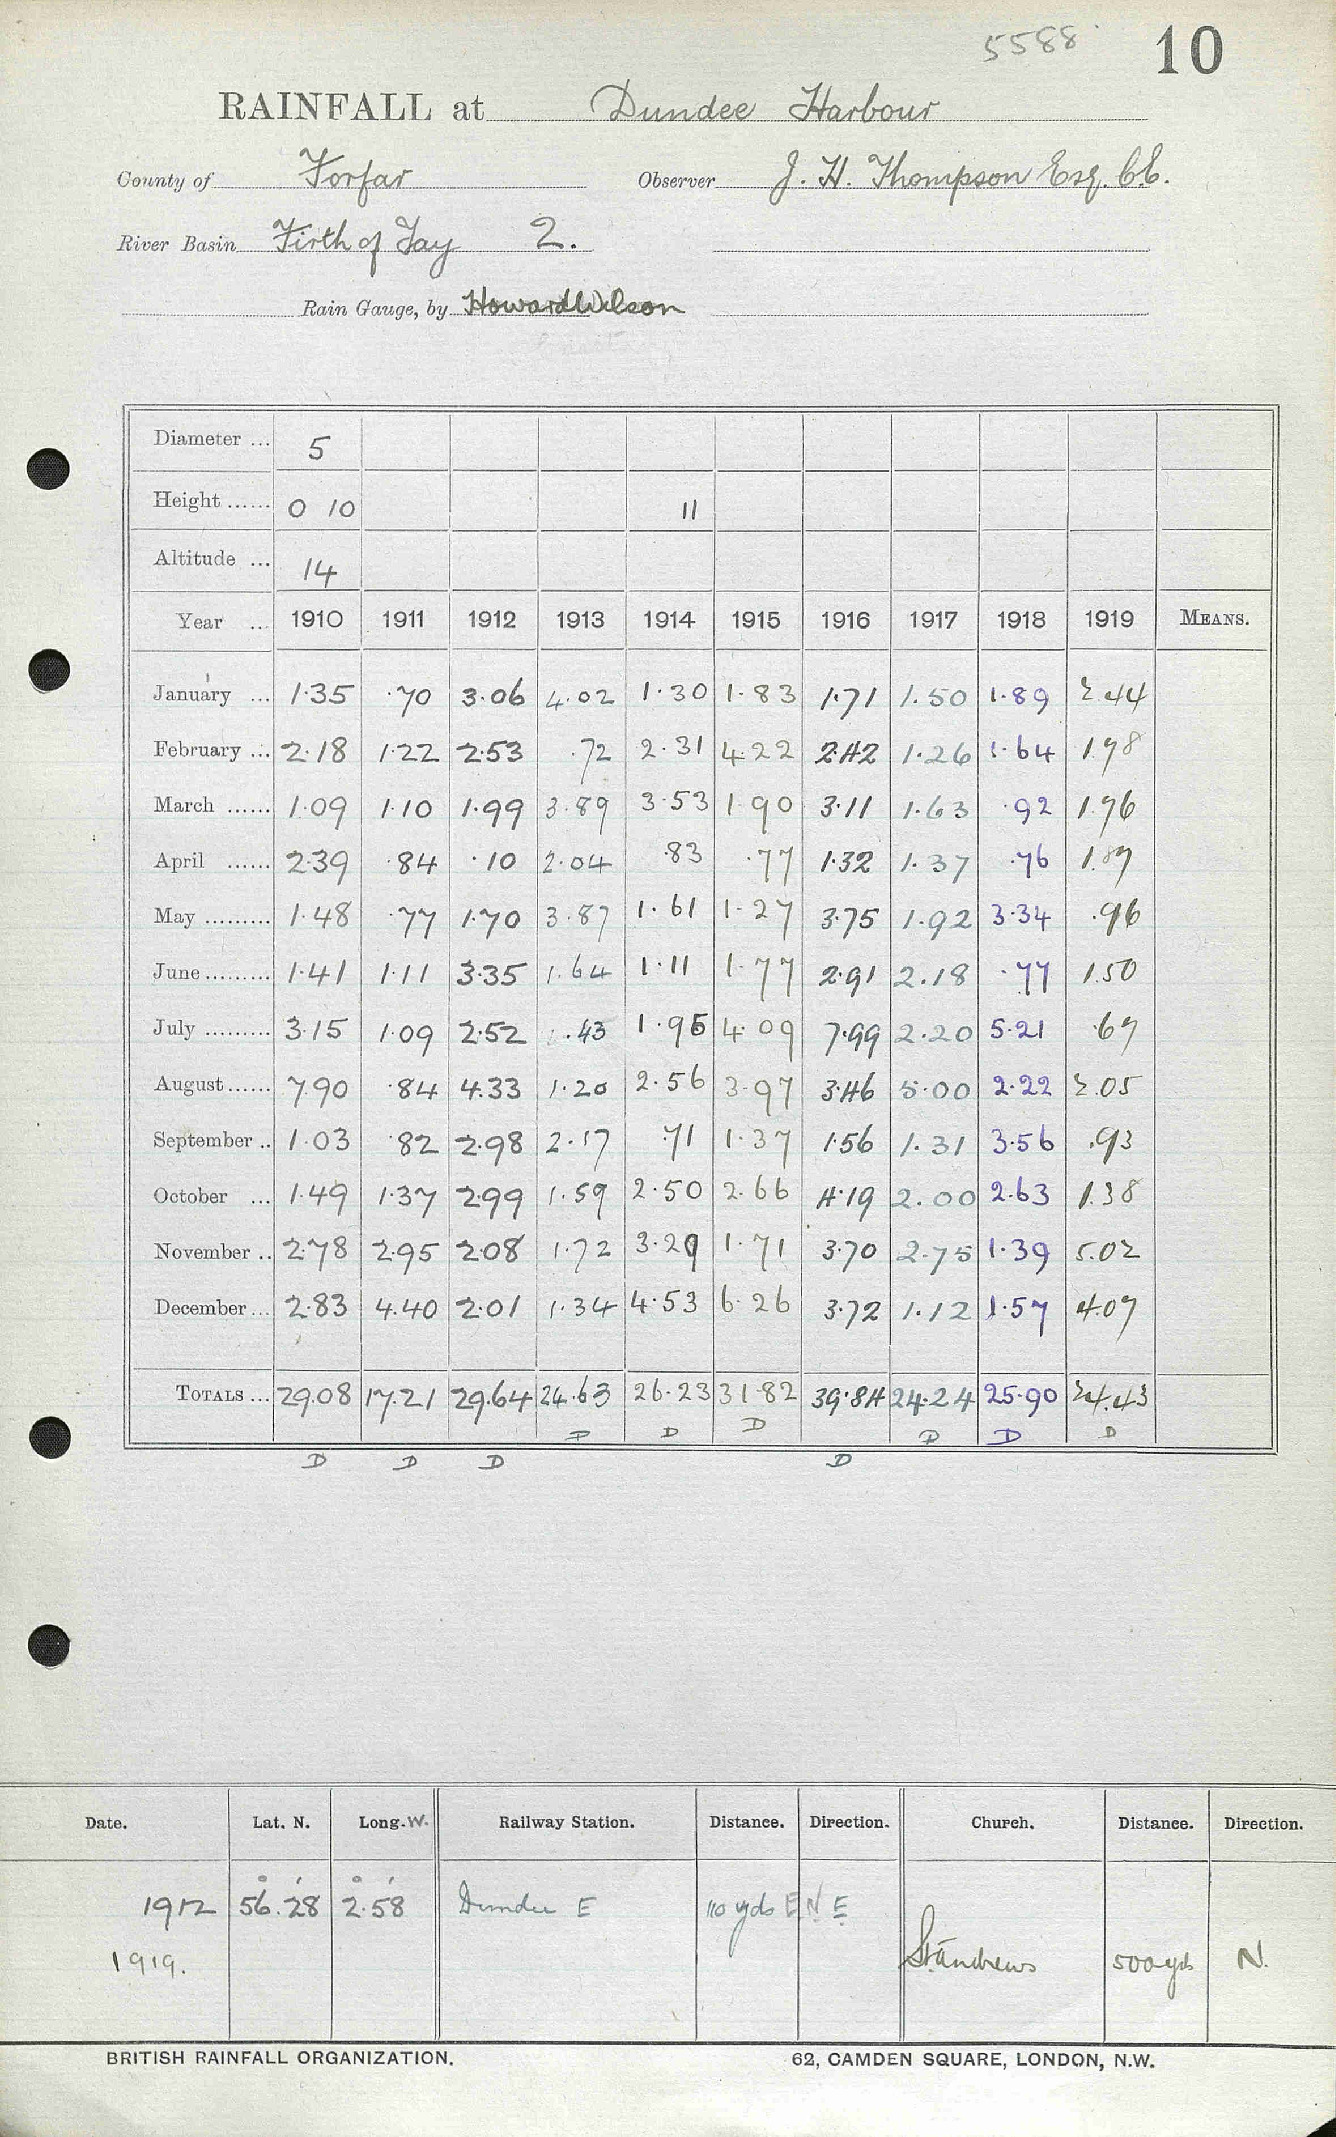 5588 10
RAINFALL at Dundee Harbour
County of Forfar Observer J. H. Thompson Esq. C.E.
River Basin Firth of Tay 2.
Rain Gauge, by Howard Wilson
Diameter ... 5
Height ...... 0 10 11
Altitude ... 14
Year ... 1910 1911 1912 1913 1914 1915 1916 1917 1918 1919 MEANS.
January ... 1.35 .70 3.06 4.02 1.30 1.83 1.71 1.50 1.89 2.44
February ... 2.18 1.22 2.53 .72 2.31 4.22 2.42 1.26 1.64 1.98
March ...... 1.09 1.10 1.99 3.89 3.53 1.90 3.11 1.63 .92 1.96
April ...... 2.39 .84 .10 2.04 .83 .77 1.32 1.37 .76 1.87
May ......... 1.48 .77 1.70 3.87 1.61 1.27 3.75 1.92 3.34 .96
June ......... 1.41 1.11 3.35 1.64 1.11 1.77 2.91 2.18 .77 1.50
July ......... 3.15 1.09 2.52 .43 1.95 4.09 7.99 2.20 5.21 .67
August ...... 7.90 .84 4.33 1.20 2.56 3.97 3.46 5.00 2.22 2.05
September .. 1.03 .82 2.98 2.17 .71 1.37 1.56 1.31 3.56 .93
October ... 1.49 1.37 2.99 1.59 2.50 2.66 4.19 2.00 2.63 1.38
November .. 2.78 2.95 2.08 1.72 3.29 1.71 3.70 2.75 1.39 5.02
December ... 2.83 4.40 2.01 1.34 4.53 6.26 3.72 1.12 1.57 4.07
TOTALS ... 29.08 17.21 29.64 24.63 26.23 31.82 39.84 24.24 25.90 24.43
D D D D D D
D D D D
Date. Lat. N. Long. W. Railway Station. Distance. Direction. Church. Distance. Direction.
1912 56°.28' 2°.58' Dundee E 110 yds E N E
1919. St Andrews 500 yds N.
BRITISH RAINFALL ORGANIZATION. 62, CAMDEN SQUARE, LONDON, N.W.